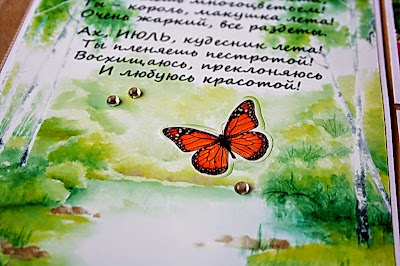 многоцветьем!
Ты - король, макушка лета!
Очень жаркий, все раздеты.
Ах, ИЮЛЬ, кудесник лета!
Ты пленяешь пестротой!
Восхищаюсь, преклоняюсь
И любуюсь красотой!